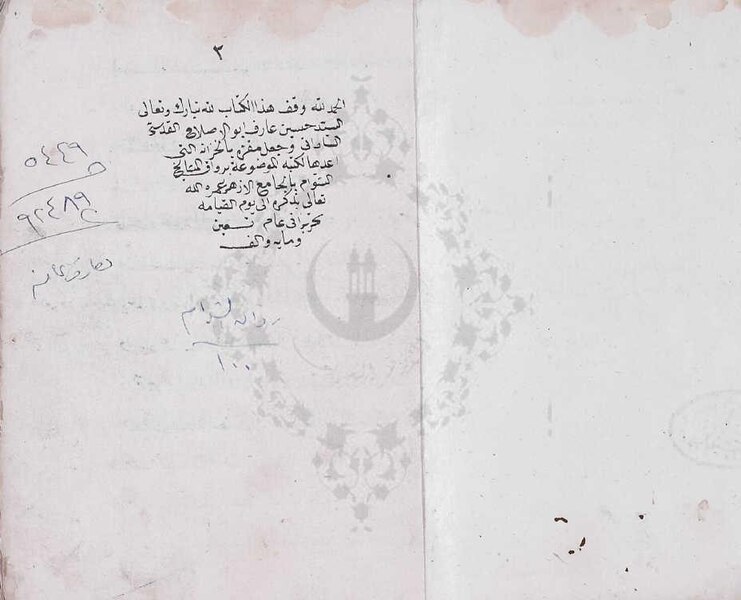 ٣
الحمد لله وقف هذا الكتاب لله تبارك وتعالى
السيد حسين عارف ابو الاصلاح القدسي
وجعل مقره بالخزانة التي
اعدها لكتبه الموضوعة برواق المشايخ
الشوام بالجامع الازهر عمره الله
تعالى بذكره الى يوم القيامه
تحريرا في عام تسعين
ومايه والف
٥٤٤٩
٩٢٤٨٩
رواق الشوام
١٠٠